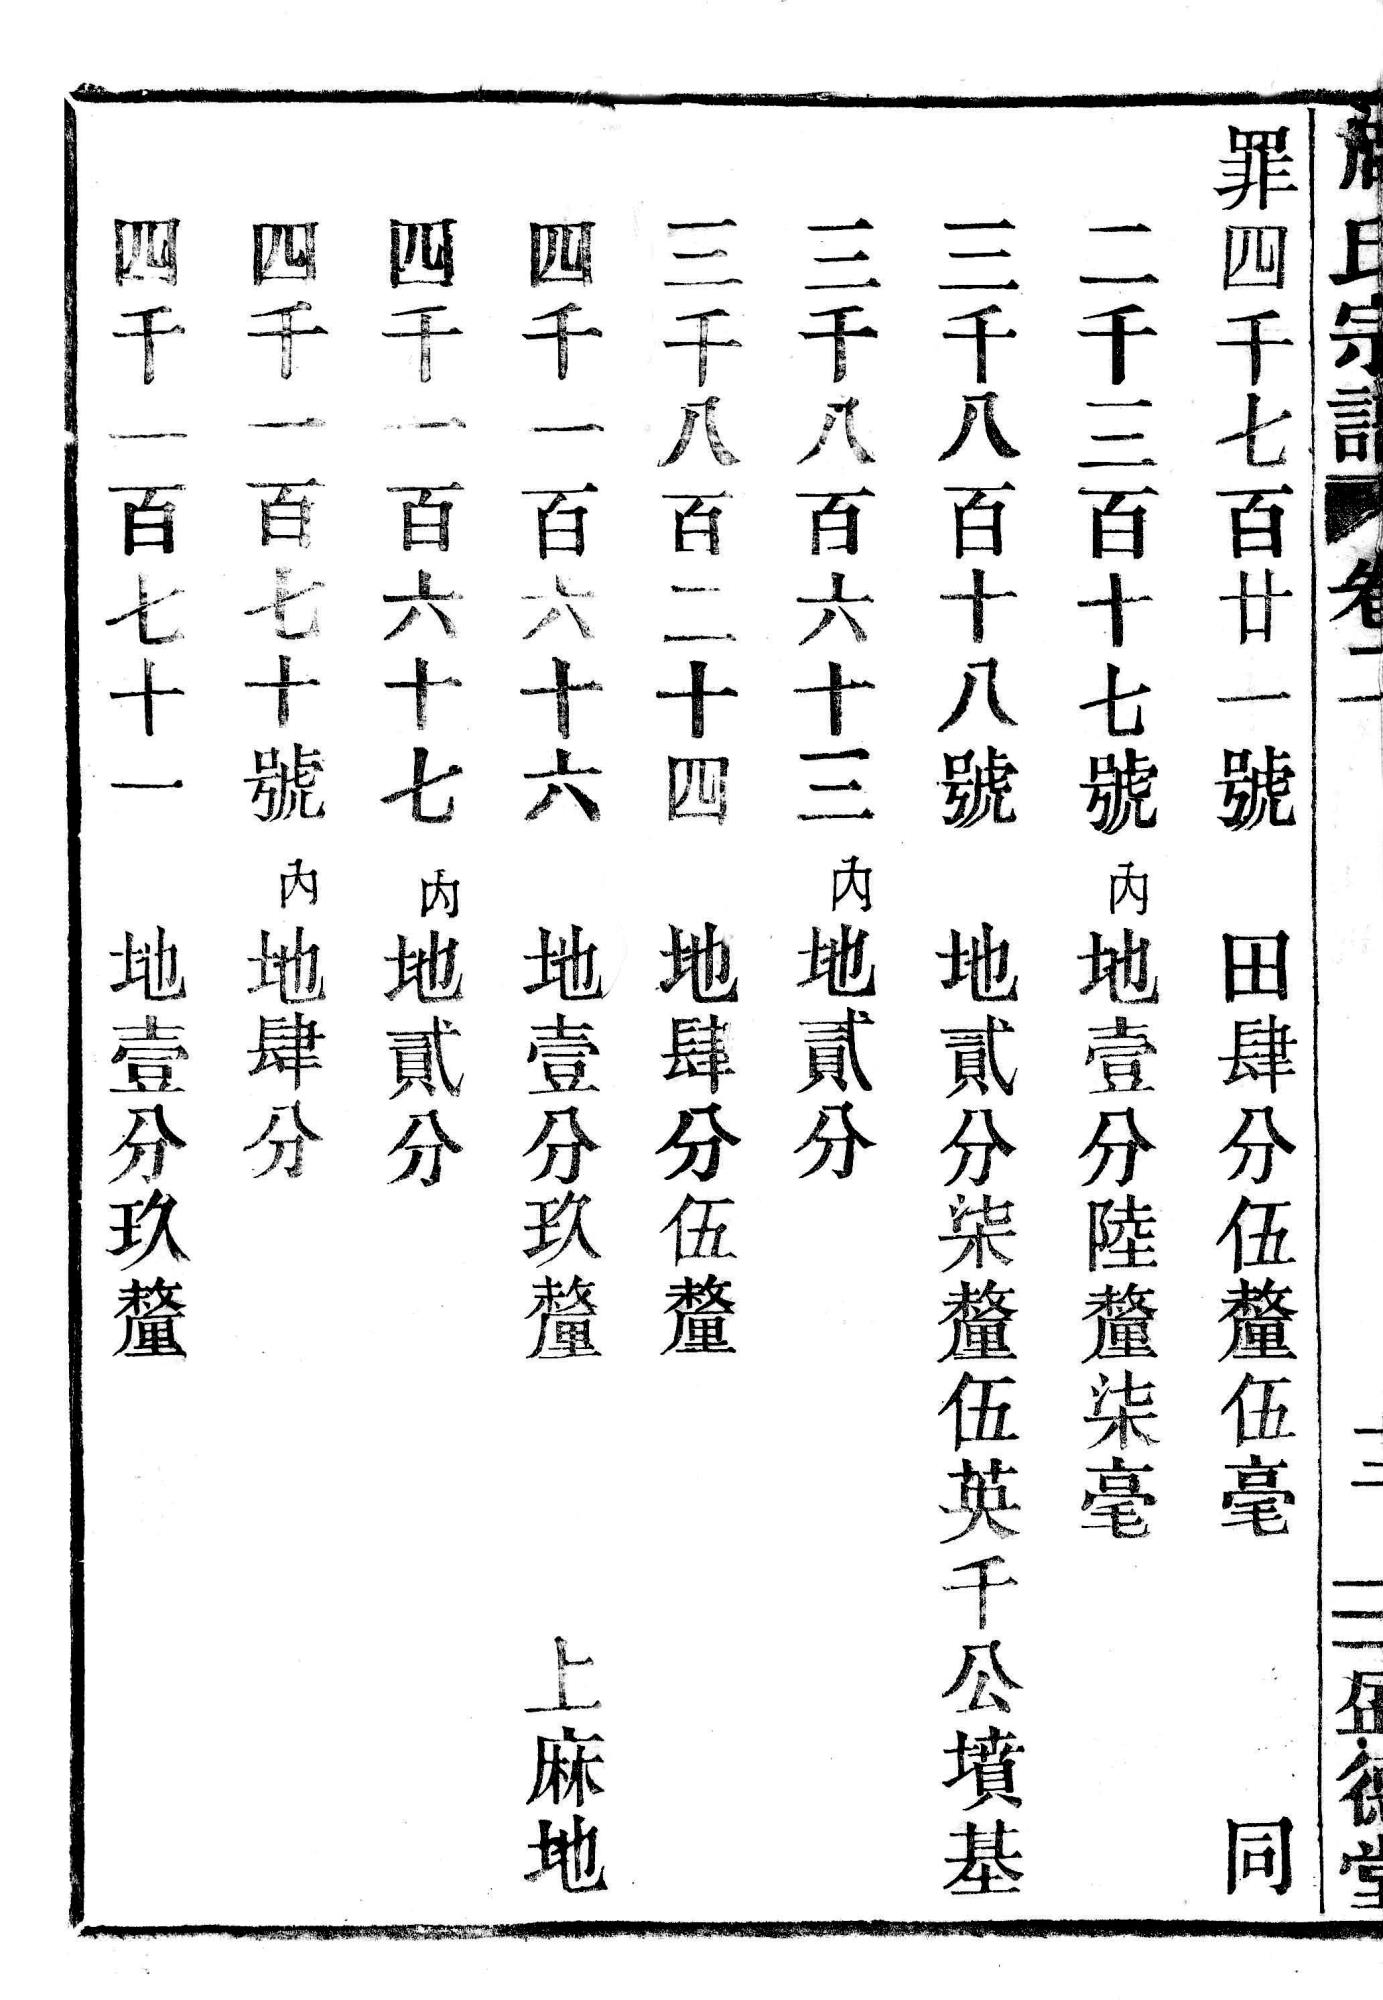 氏宗譜 卷二 十三 盛德堂
罪四千七百廿一號 田肆分伍釐伍毫 同
二千三百十七號 內地壹分陸釐柒毫
三千八百十八號 地貳分柒釐伍英千公墳基
三千八百六十三 內地貳分
三千八百二十四 地肆分伍釐
四千一百六十六 地壹分玖釐 上麻地
四千一百六十七 內地貳分
四千一百七十號 內地肆分
四千一百七十一 地壹分玖釐